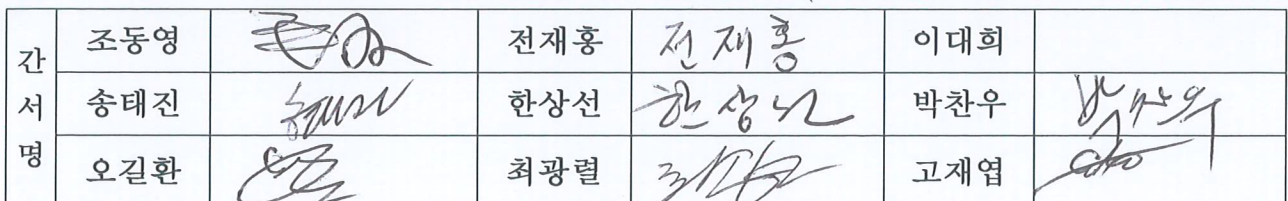 간 서 명
조동영 전재홍 전재홍 이대희
송태진 한상선 한상선 박찬우 박찬우
오길환 최광렬 고재엽